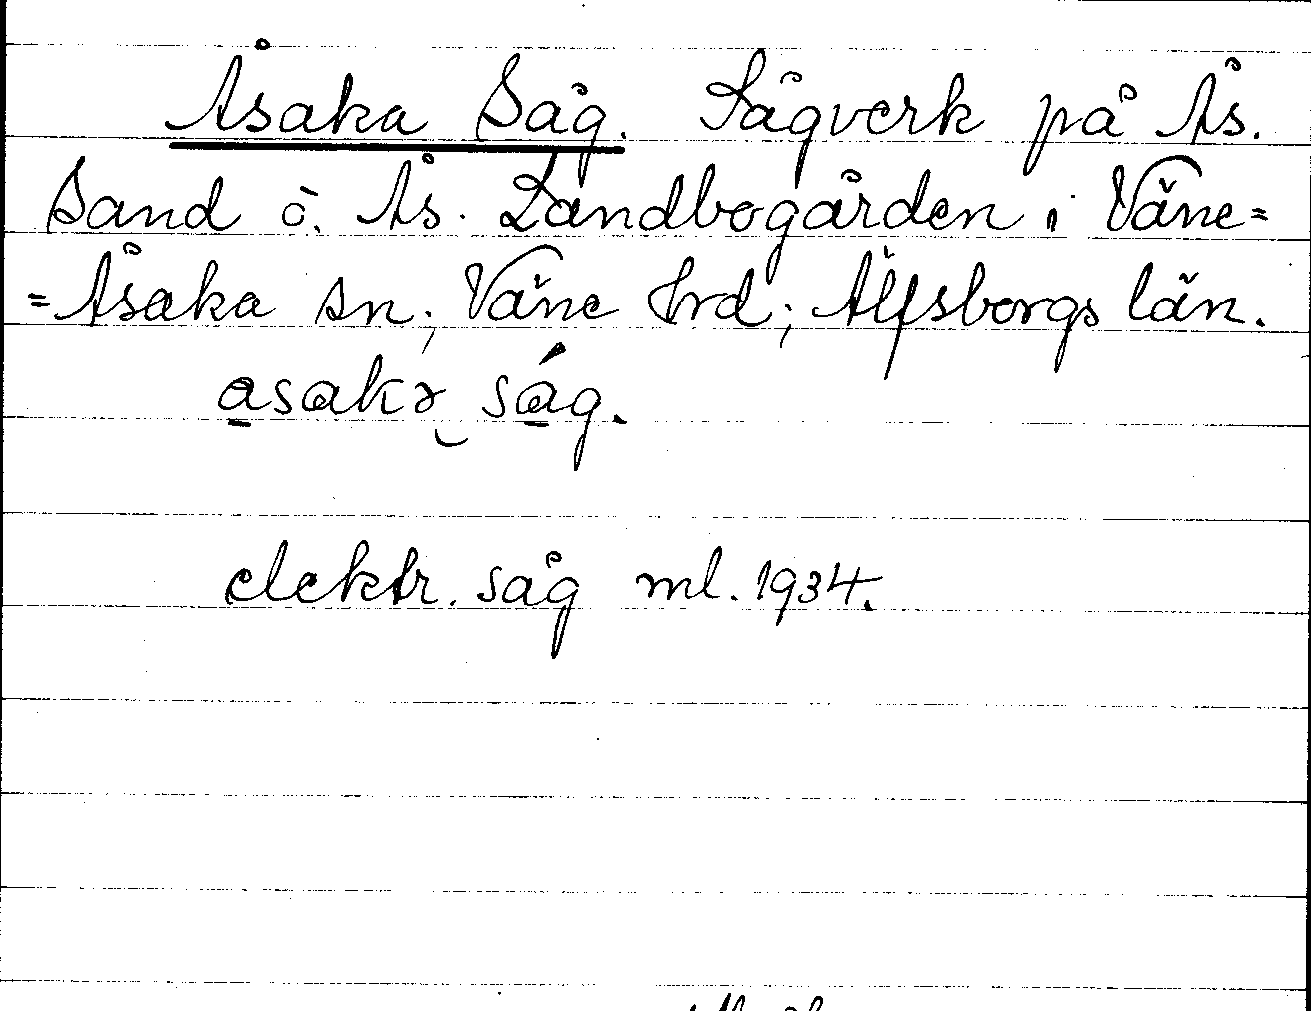 Åsaka Såg. Sågverk på Ås.
Sand o. Ås. Landbogården i Väne=
=Åsaka sn; Väne hrd; Älfsborgs län.
a̠sakə såg.
elektr. såg ml. 1934.